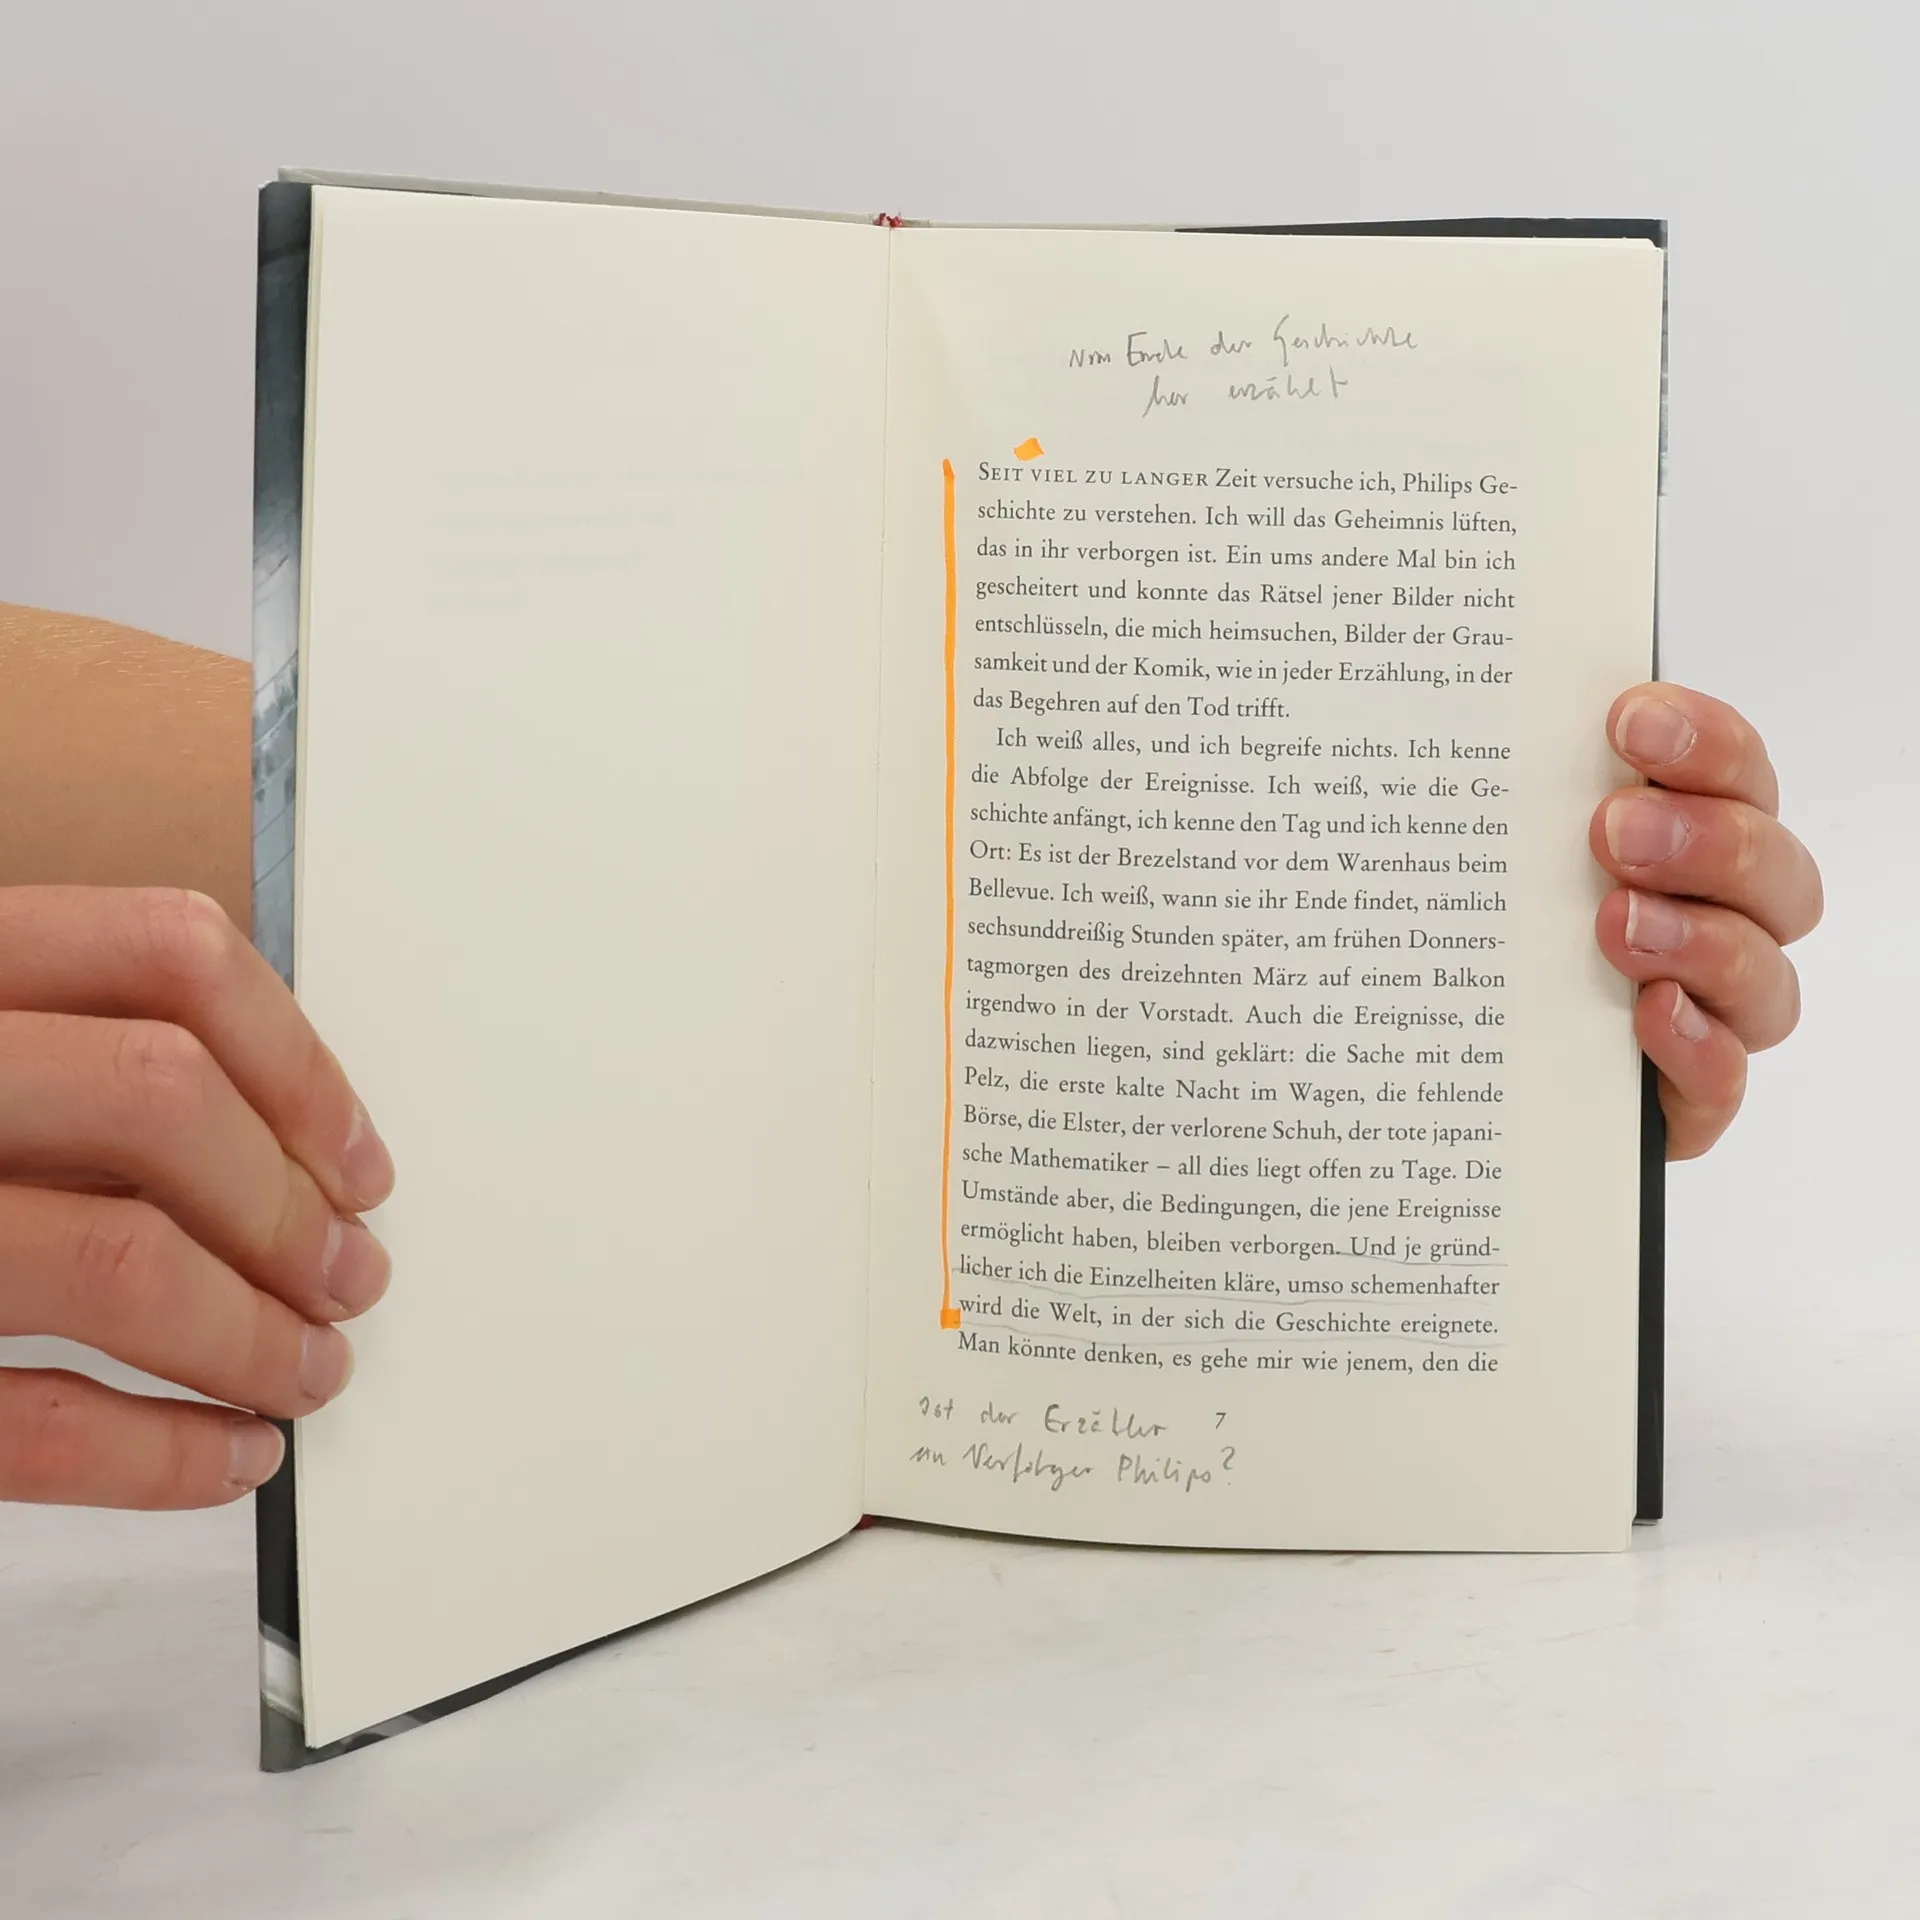 vom Ende der Geschichte
her erzählt
SEIT VIEL ZU LANGER Zeit versuche ich, Philips Ge-
schichte zu verstehen. Ich will das Geheimnis lüften,
das in ihr verborgen ist. Ein ums andere Mal bin ich
gescheitert und konnte das Rätsel jener Bilder nicht
entschlüsseln, die mich heimsuchen, Bilder der Grau-
samkeit und der Komik, wie in jeder Erzählung, in der
das Begehren auf den Tod trifft.
Ich weiß alles, und ich begreife nichts. Ich kenne
die Abfolge der Ereignisse. Ich weiß, wie die Ge-
schichte anfängt, ich kenne den Tag und ich kenne den
Ort: Es ist der Brezelstand vor dem Warenhaus beim
Bellevue. Ich weiß, wann sie ihr Ende findet, nämlich
sechsunddreißig Stunden später, am frühen Donners-
tagmorgen des dreizehnten März auf einem Balkon
irgendwo in der Vorstadt. Auch die Ereignisse, die
dazwischen liegen, sind geklärt: die Sache mit dem
Pelz, die erste kalte Nacht im Wagen, die fehlende
Börse, die Elster, der verlorene Schuh, der tote japani-
sche Mathematiker – all dies liegt offen zu Tage. Die
Umstände aber, die Bedingungen, die jene Ereignisse
ermöglicht haben, bleiben verborgen. Und je gründ-
licher ich die Einzelheiten kläre, umso schemenhafter
wird die Welt, in der sich die Geschichte ereignete.
Man könnte denken, es gehe mir wie jenem, den die
Ist der Erzähler
ein Verfolger Philips?
7